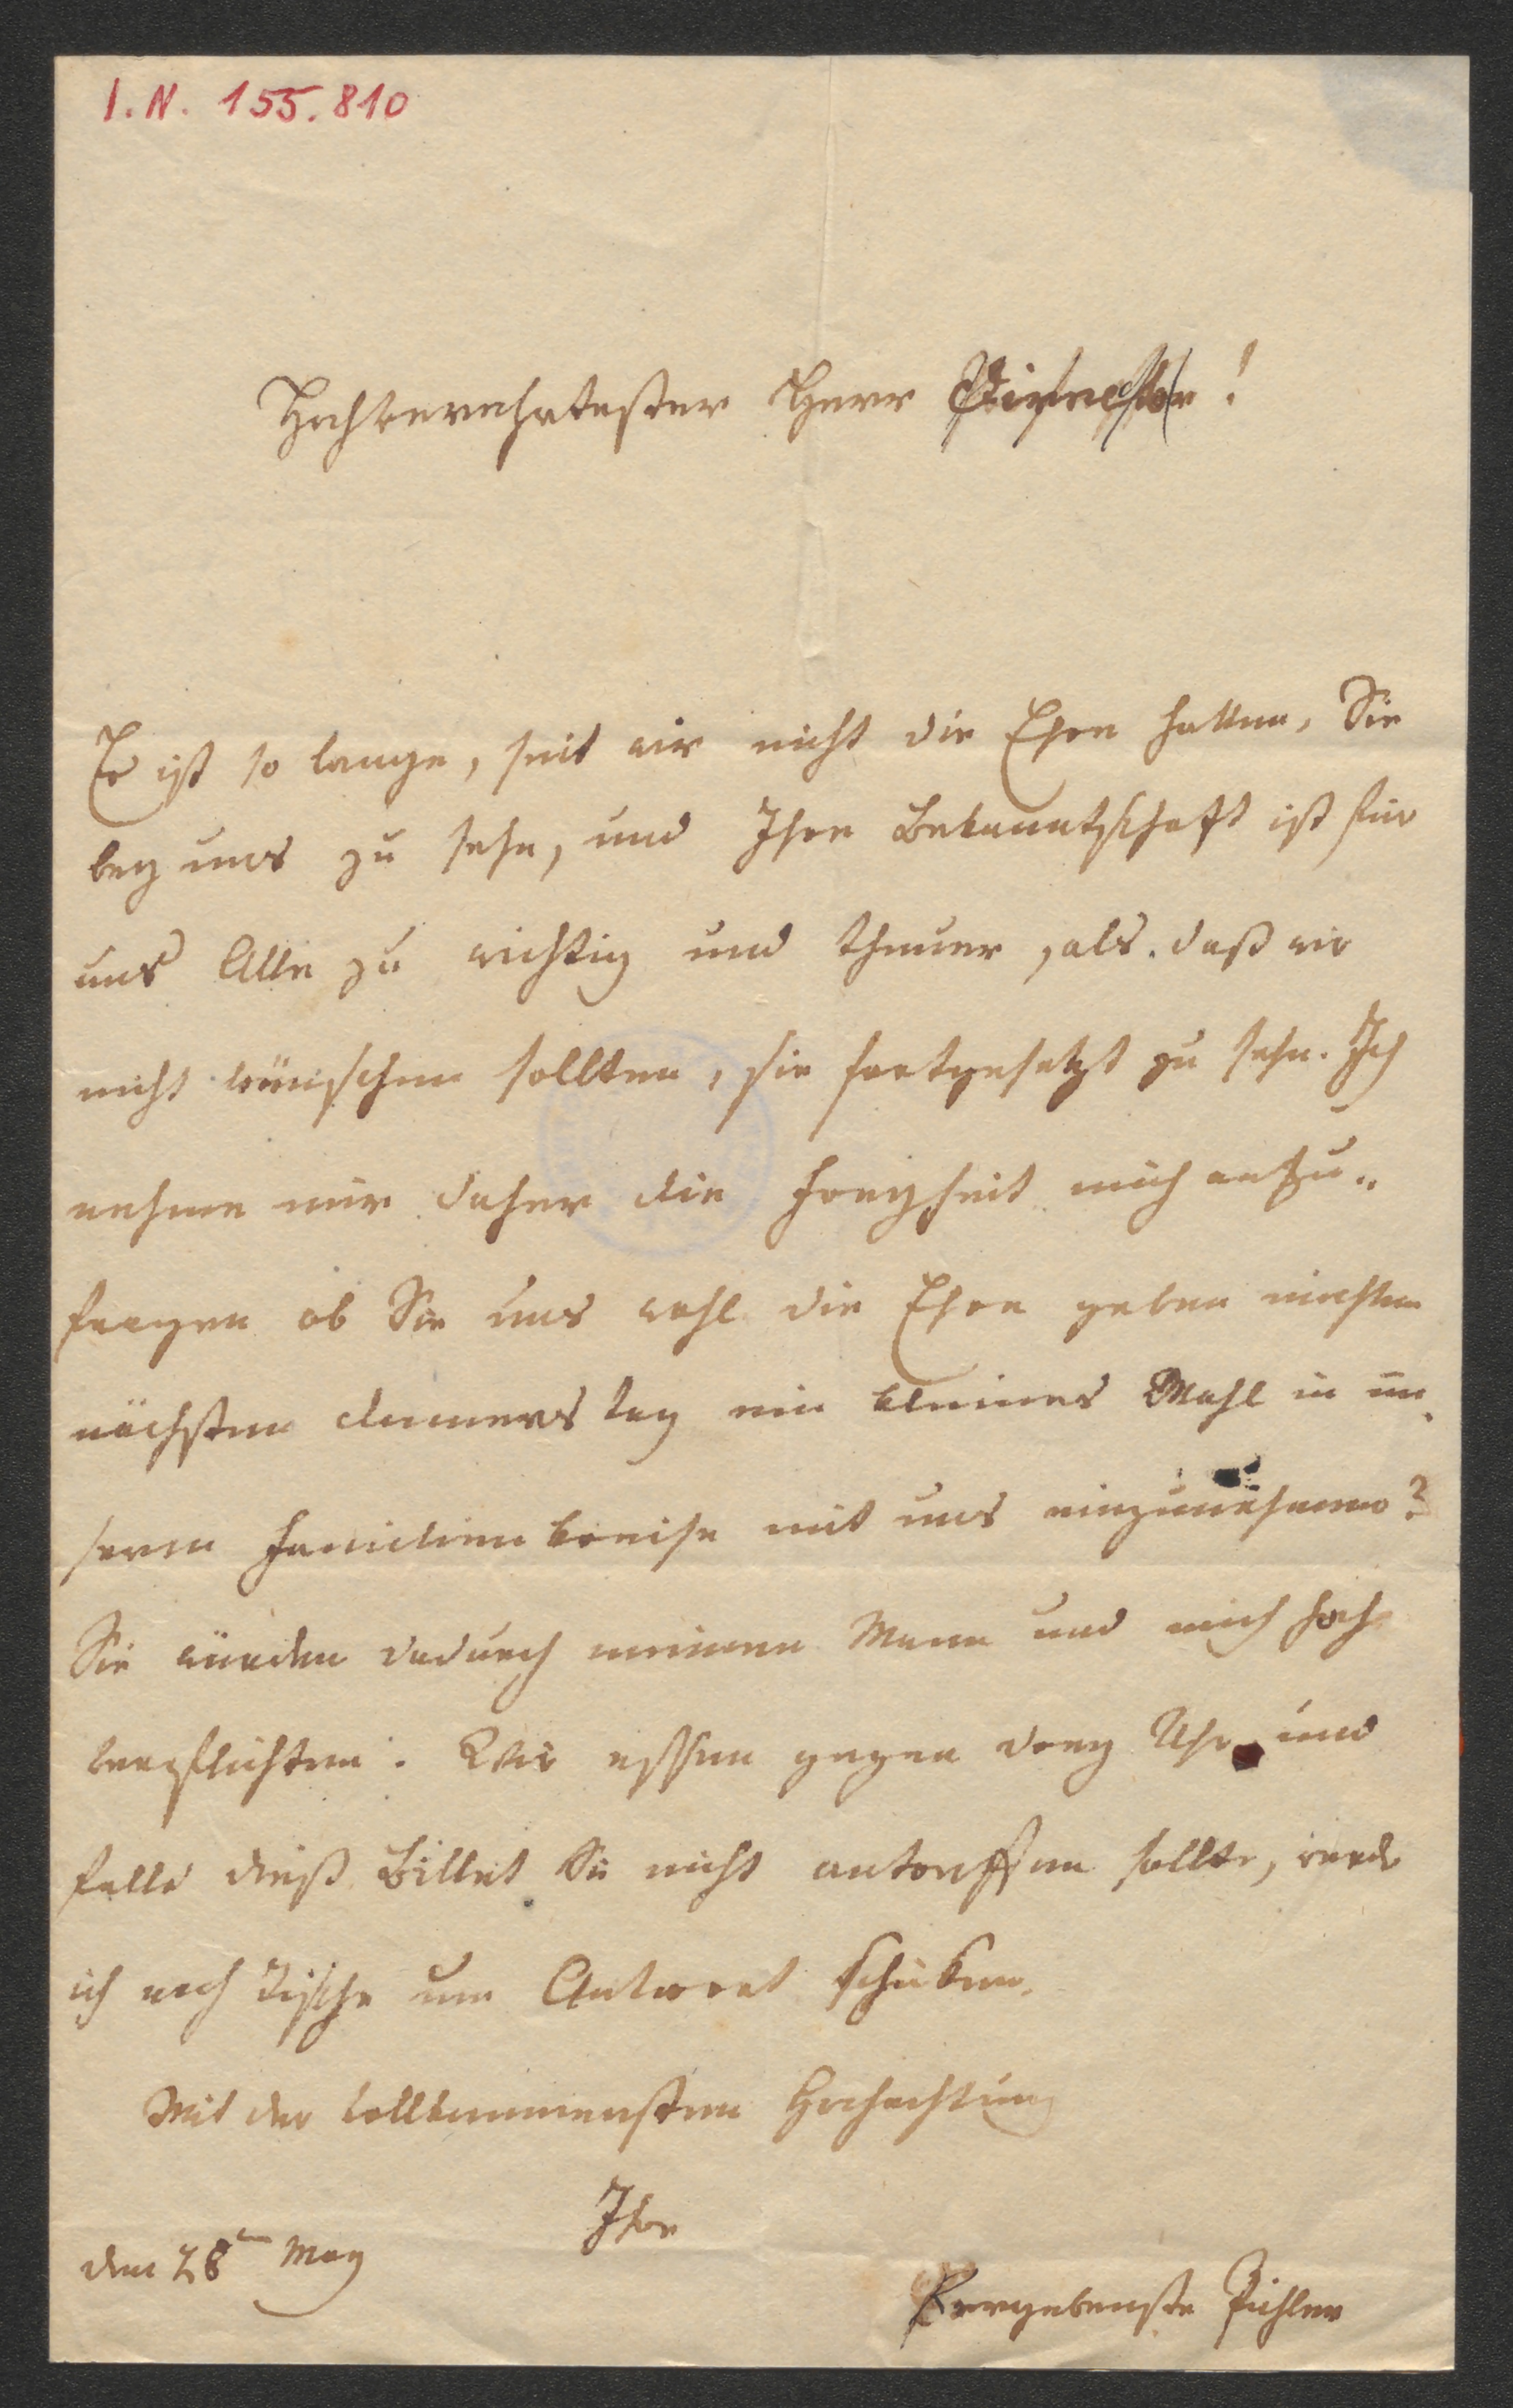 I. N. 155.810
Hochverehrtester Herr Director!
Es ist so lange, seit wir nicht die Ehre hatten, Sie
bey uns zu sehn, und Ihre Bekanntschaft ist für
uns Alle zu wichtig und theuer, als daß wir
nicht wünschen sollten, sie fortgesetzt zu sehn. Ich
nehme mir daher die Freyheit mich anzu-
fragen ob Sie uns wohl die Ehre geben möchten
nächsten donnerstag ein kleines Mahl in un-
serm Familienkreise mit uns einzunehmen?
Sie würden dadurch meinen Mann und mich hoch
verpflichten. Wir essen gegen drey Uhr und
falls dieß Billet Sie nicht antreffen sollte, werde
ich nach Tische um Antwort schicken.
Mit der vollkommensten Hochachtung
Ihre
den 28ten May
Ergebenste Pichler